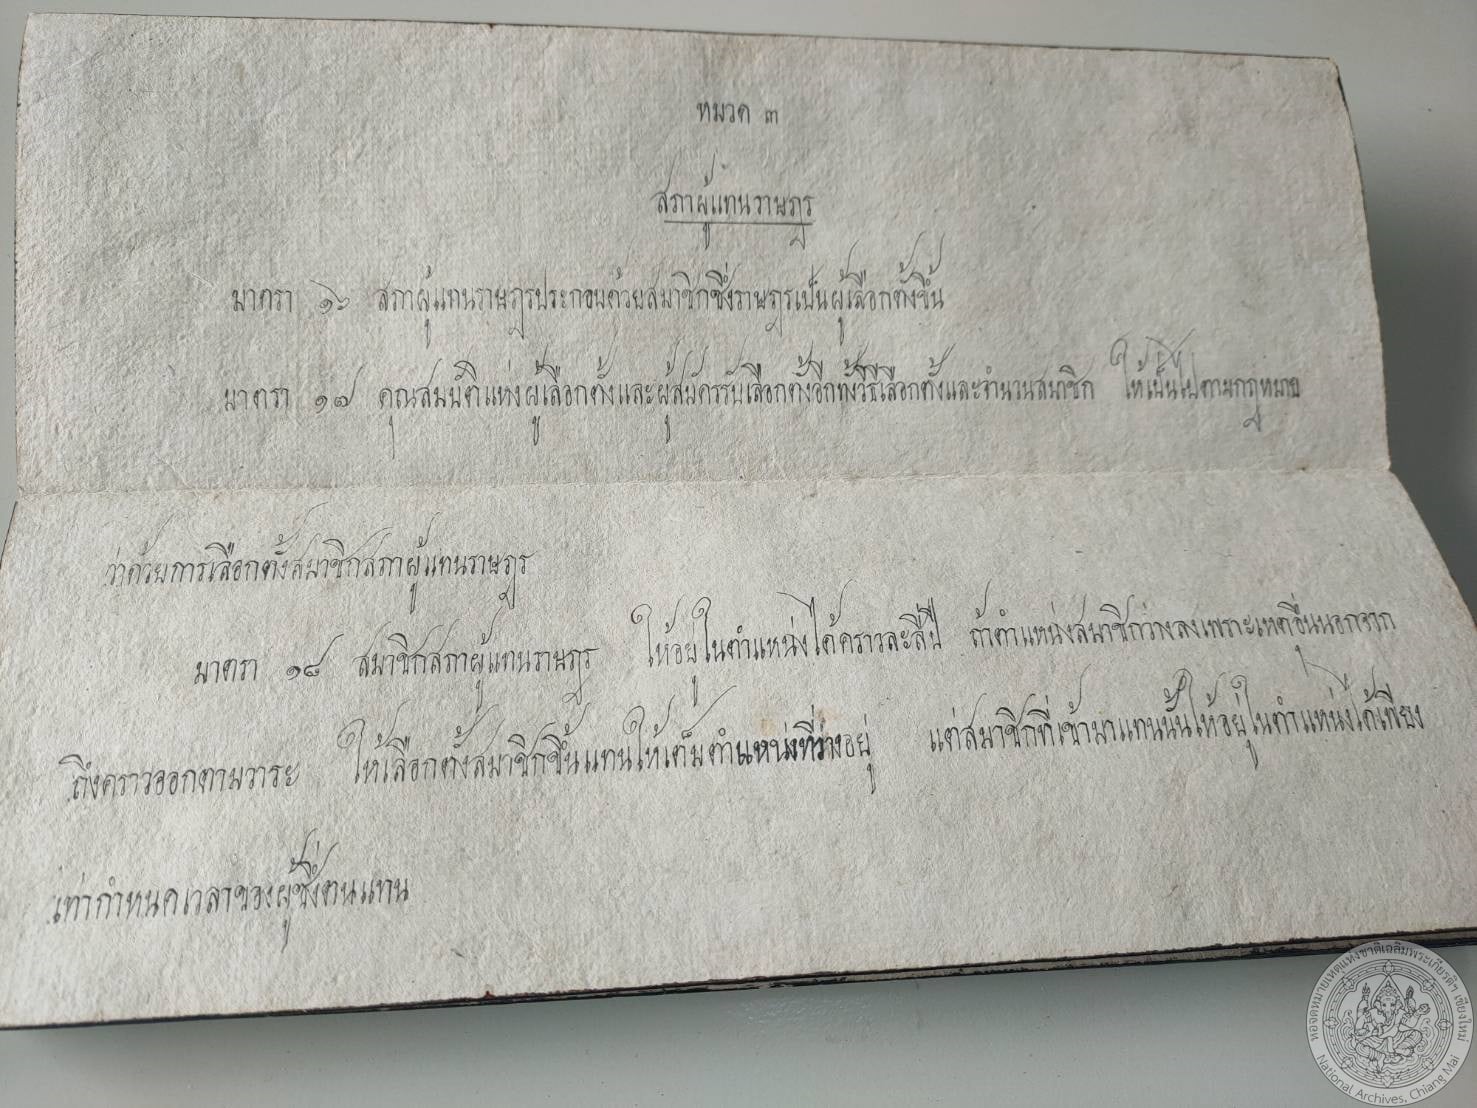 หมวด ๓
สภาผู้แทนราษฎร
มาตรา ๑๖ สภาผู้แทนราษฎรประกอบด้วยสมาชิกซึ่งราษฎรเป็นผู้เลือกตั้งขึ้น
มาตรา ๑๗ คุณสมบัติแห่งผู้เลือกตั้งและผู้สมัครรับเลือกตั้งอีกทั้งวิธีเลือกตั้งและจำนวนสมาชิก ให้เป็นไปตามกฎหมาย
ว่าด้วยการเลือกตั้งสมาชิกสภาผู้แทนราษฎร
มาตรา ๑๘ สมาชิกสภาผู้แทนราษฎร ให้อยู่ในตำแหน่งได้คราวละสี่ปี ถ้าตำแหน่งสมาชิกว่างลงเพราะเหตุอื่นนอกจาก
ถึงคราวออกตามวาระ ให้เลือกตั้งสมาชิกขึ้นแทนให้เต็มตำแหน่งที่ว่างอยู่ แต่สมาชิกที่เข้ามาแทนนั้นให้อยู่ในตำแหน่งได้เพียง
เท่ากำหนดเวลาของผู้ซึ่งตนแทน
หอจดหมายเหตุแห่งชาติเฉลิมพระเกียรติฯ เชียงใหม่
National Archives, Chiang Mai